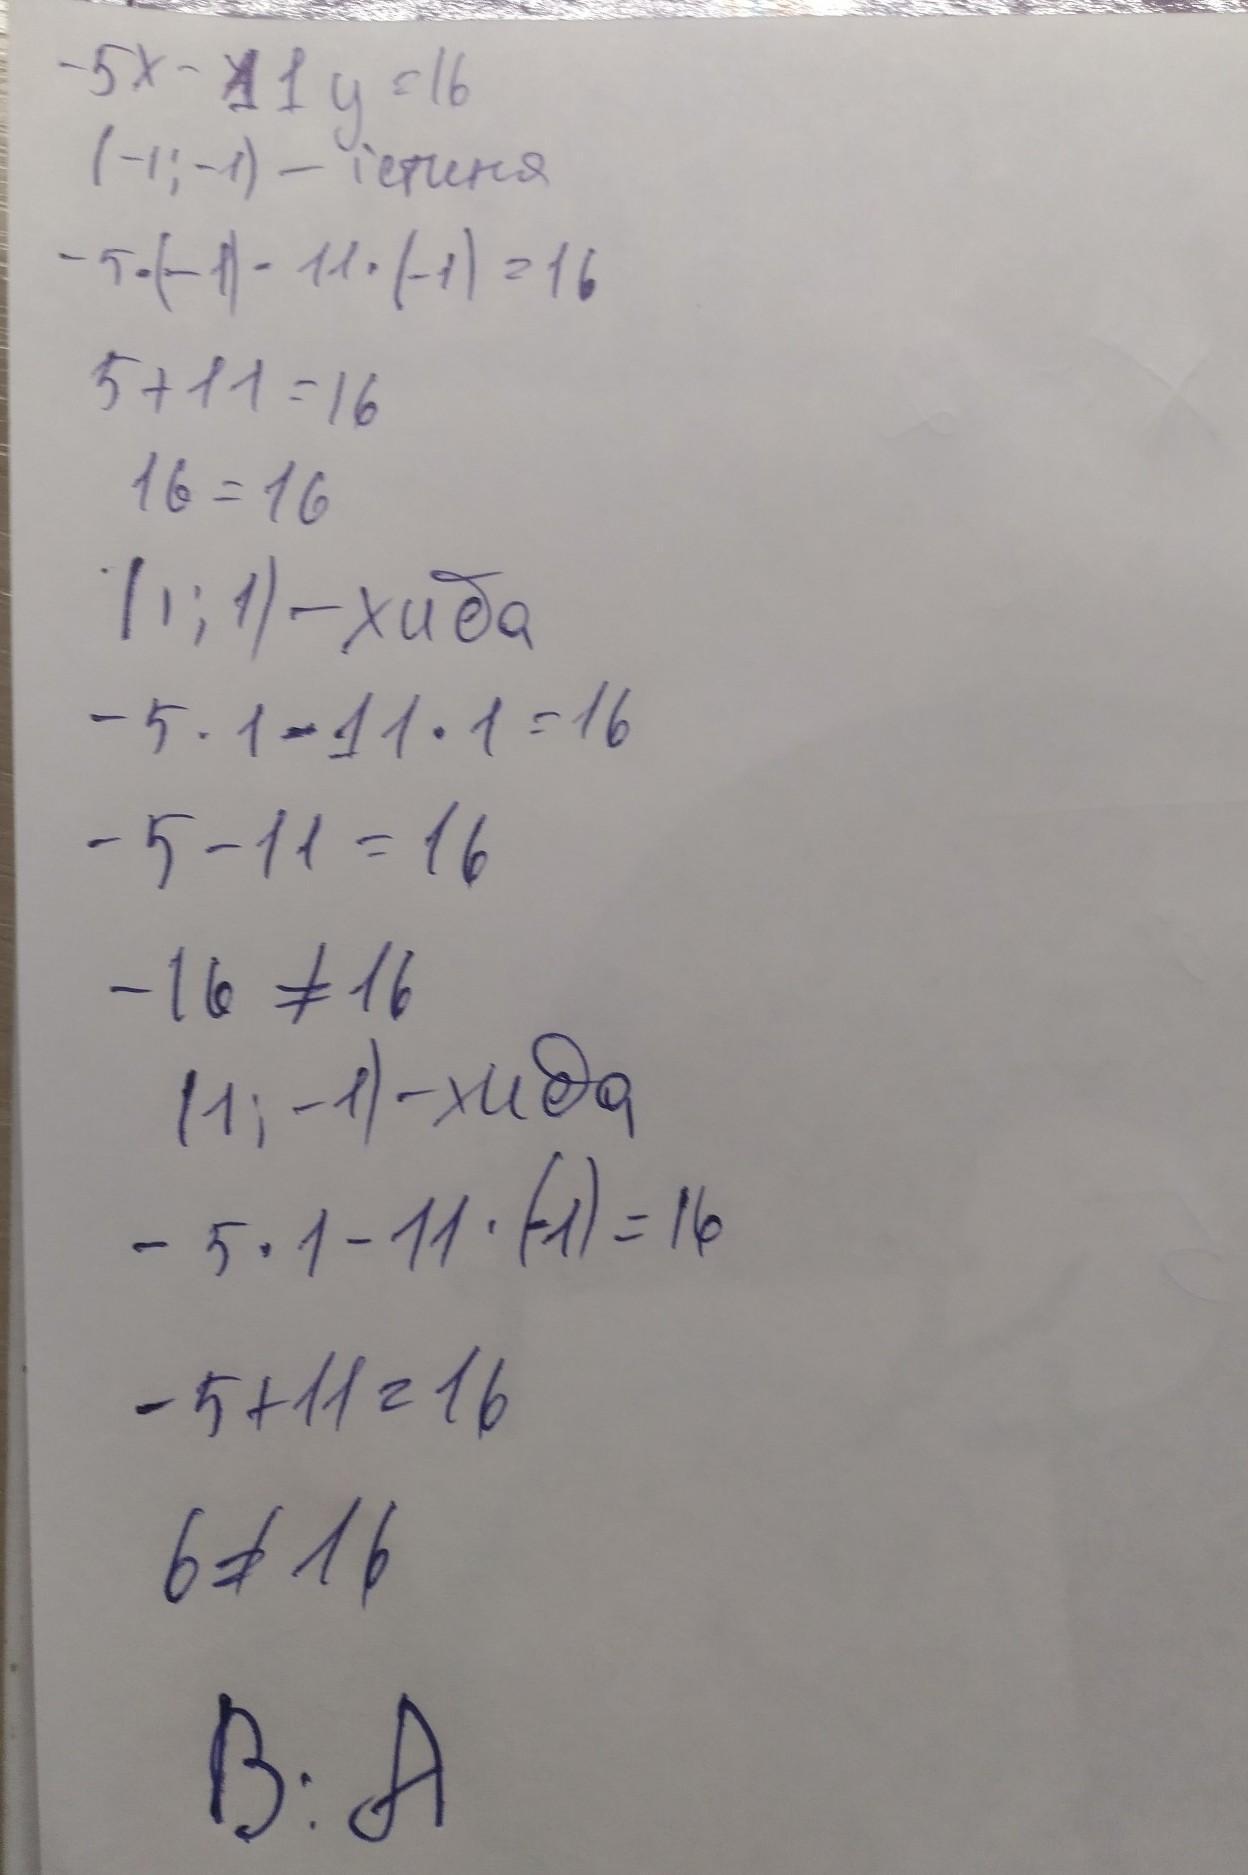 -5x-11y=16
(-1;-1) - істиня
-5·(-1)-11·(-1)=16
5+11=16
16=16
(1;1) - хиба
-5·1-11·1=16
-5-11=16
-16≠16
(1;-1) - хиба
-5·1-11·(-1)=16
-5+11=16
6≠16
В: А